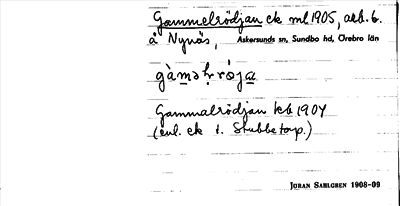 Gammelrödjan ek ml 1905, arb. b.
å Nynäs, Askersunds sn, Sundbo hd, Örebro län
gàməḷröja
Gammalrödjan kb 1904
(enl. ek i. Stubbetorp.)
JÖRAN SAHLGREN 1908-09